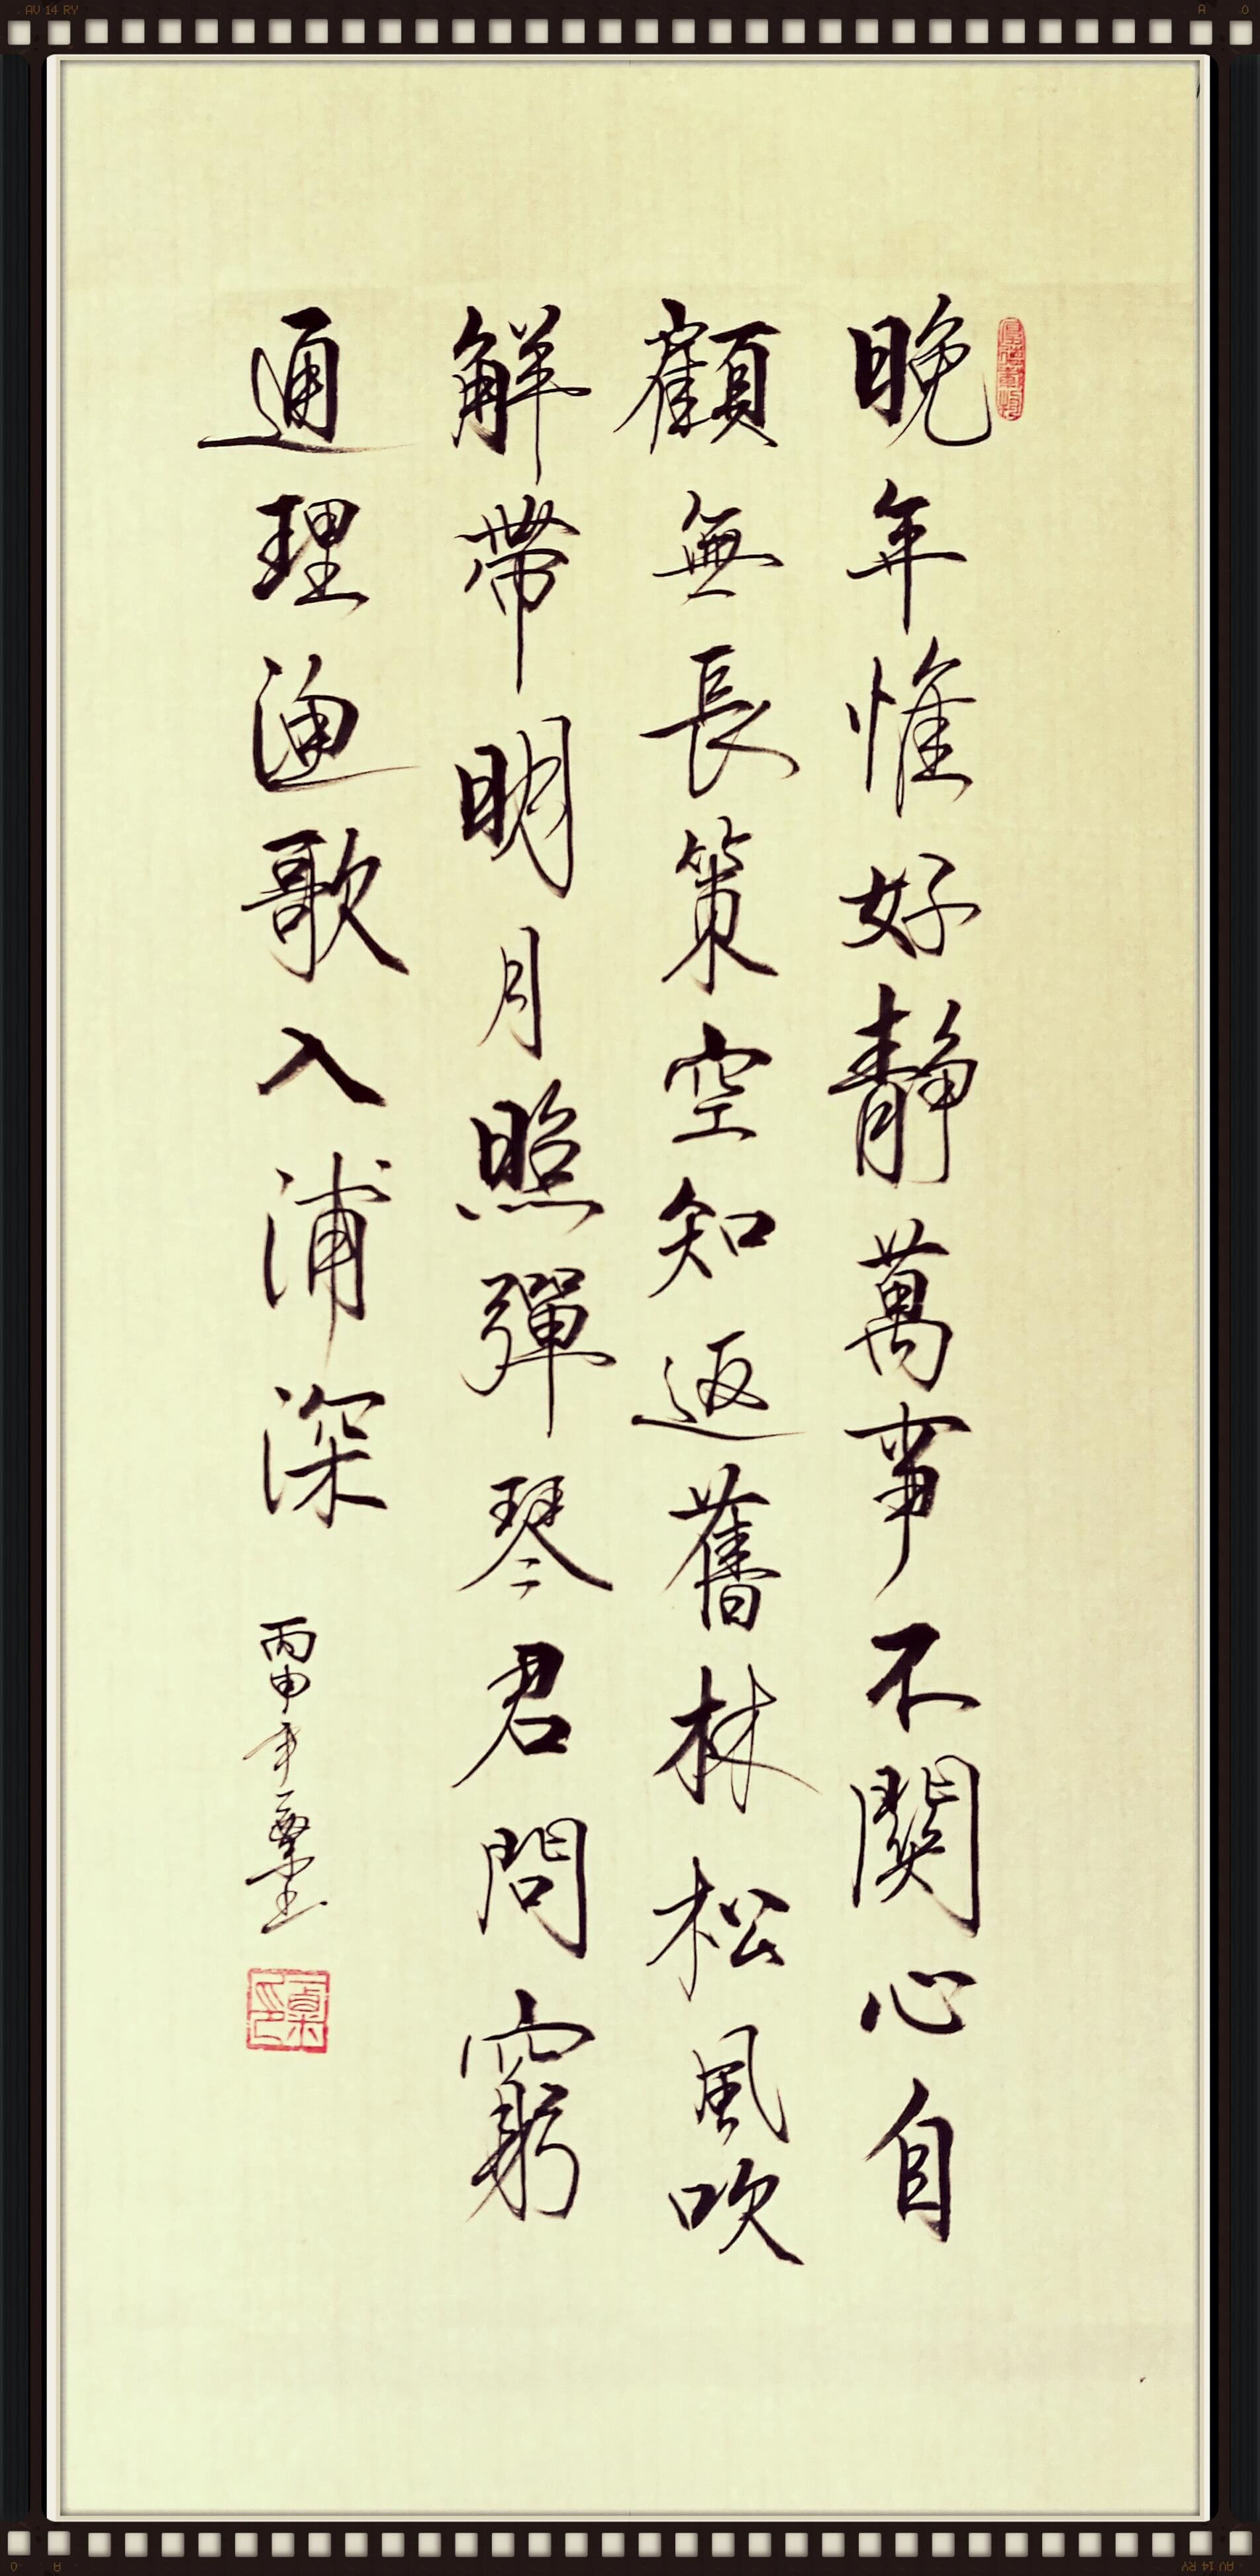 晚年惟好靜萬事不關心自
顧無長策空知返舊林松風吹
解帶明月照彈琴君問窮
通理漁歌入浦深
丙申年